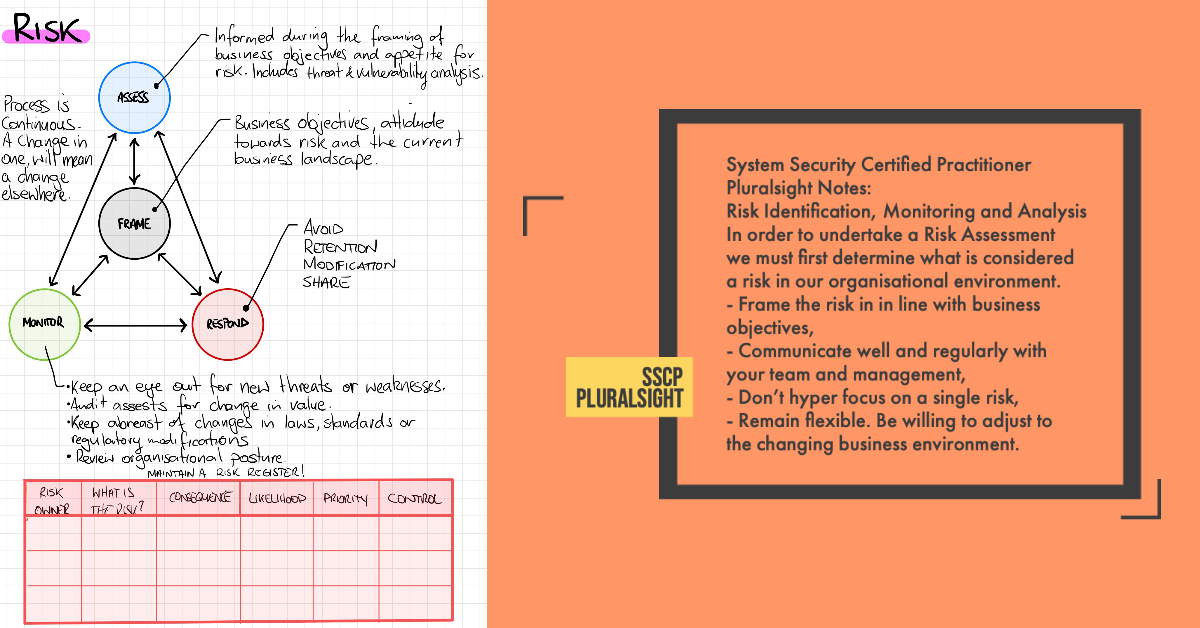 RISK
Informed during the framing of
business objectives and appetite for
risk. Includes threat & vulnerability analysis.
ASSESS
Process is
Continuous.
A Change in
one, will mean
a change
elsewhere.
Business objectives, attidude
towards risk and the current
business landscape.
FRAME
AVOID
RETENTION
MODIFICATION
SHARE
MONITOR
RESPOND
•Keep an eye out for new threats or weaknesses.
•Audit assests for change in value.
•Keep abreast of changes in laws, standards or
regulatory modifications
• Review organisational posture.
MAINTAIN A RISK REGISTER!
RISK
OWNER
WHAT IS
THE RISK?
CONSEQUENCE
LIKELIHOOD
PRIORITY
CONTROL
System Security Certified Practitioner
Pluralsight Notes:
Risk Identification, Monitoring and Analysis
In order to undertake a Risk Assessment
we must first determine what is considered
a risk in our organisational environment.
- Frame the risk in in line with business
objectives,
- Communicate well and regularly with
your team and management,
- Don't hyper focus on a single risk,
- Remain flexible. Be willing to adjust to
the changing business environment.
SSCP
PLURALSIGHT